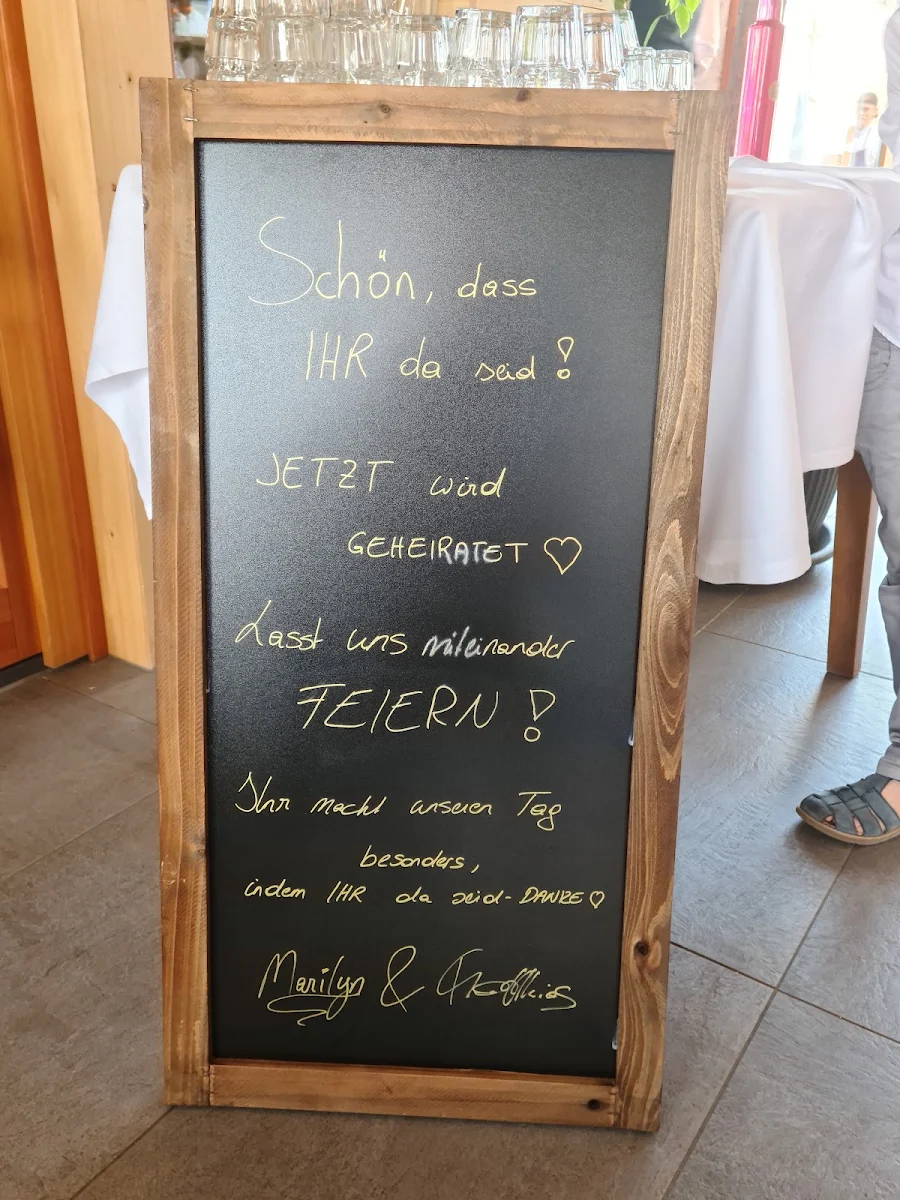 Schön, dass
IHR da seid!
JETZT wird
GEHEIRATET ♡
Lasst uns miteinander
FEIERN!
Ihr macht unseren Tag
besonders,
indem IHR da seid - DANKE ♡
Marilyn &